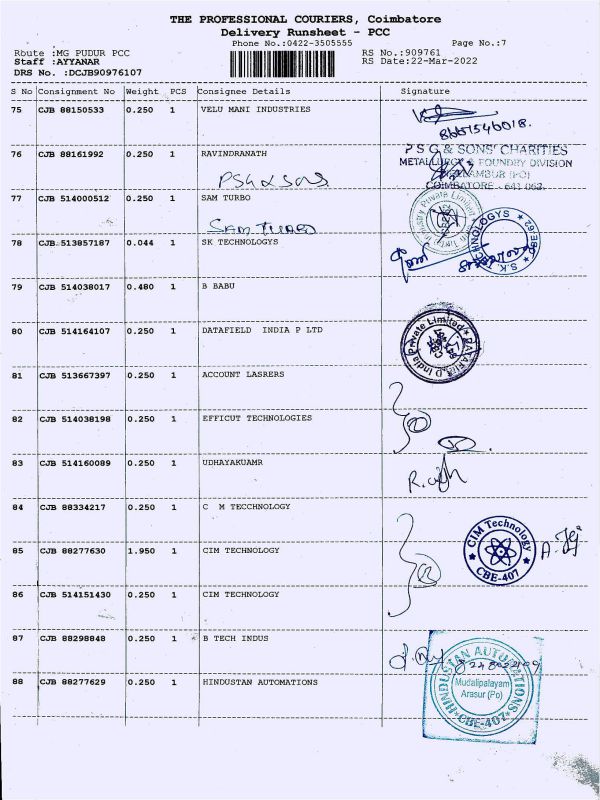 THE PROFESSIONAL COURIERS, Coimbatore
Delivery Runsheet - PCC
Phone No.:0422-3505555 Page No.:7
Route :MG PUDUR PCC RS No.:909761
Staff :AYYANAR RS Date:22-Mar-2022
DRS No. :DCJB90976107
S No Consignment No Weight PCS Consignee Details Signature
75 CJB 88150533 0.250 1 VELU MANI INDUSTRIES
76 CJB 88161992 0.250 1 RAVINDRANATH
PSG & SONS
P S G & SONS' CHARITIES
METALLURGY & FOUNDRY DIVISION
COIMBATORE - 641 062.
77 CJB 514000512 0.250 1 SAM TURBO
SAM TURBO
78 CJB 513857187 0.044 1 SK TECHNOLOGYS
S.K. TECHNOLOGYS
79 CJB 514038017 0.480 1 B BABU
80 CJB 514164107 0.250 1 DATAFIELD INDIA P LTD
DATAFIELD India Private Limited
81 CJB 513667397 0.250 1 ACCOUNT LASRERS
82 CJB 514038198 0.250 1 EFFICUT TECHNOLOGIES
83 CJB 514160089 0.250 1 UDHAYAKUAMR
84 CJB 88334217 0.250 1 C M TECCHNOLOGY
85 CJB 88277630 1.950 1 CIM TECHNOLOGY
CIM Technology
CBE-407
86 CJB 514151430 0.250 1 CIM TECHNOLOGY
87 CJB 88298848 0.250 1 B TECH INDUS
88 CJB 88277629 0.250 1 HINDUSTAN AUTOMATIONS
HINDUSTAN AUTOMATIONS
Mudalipalayam
Arasur (Po)
CBE-407